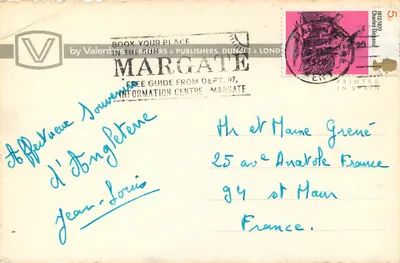 V by Valentine
PUBLISHERS, DUNDEE & LONDON
BOOK YOUR PLACE
IN THE SUN
MARGATE
FREE GUIDE FROM DEPT. 97,
INFORMATION CENTRE MARGATE
5
1812/1870
Charles Dickens
PRINTED
IN SPAIN
Affectueux Souvenir
d'Angleterre
Jean-Louis
Mr et Mme Grené
25 ave Anatole France
94 st Maur
France.